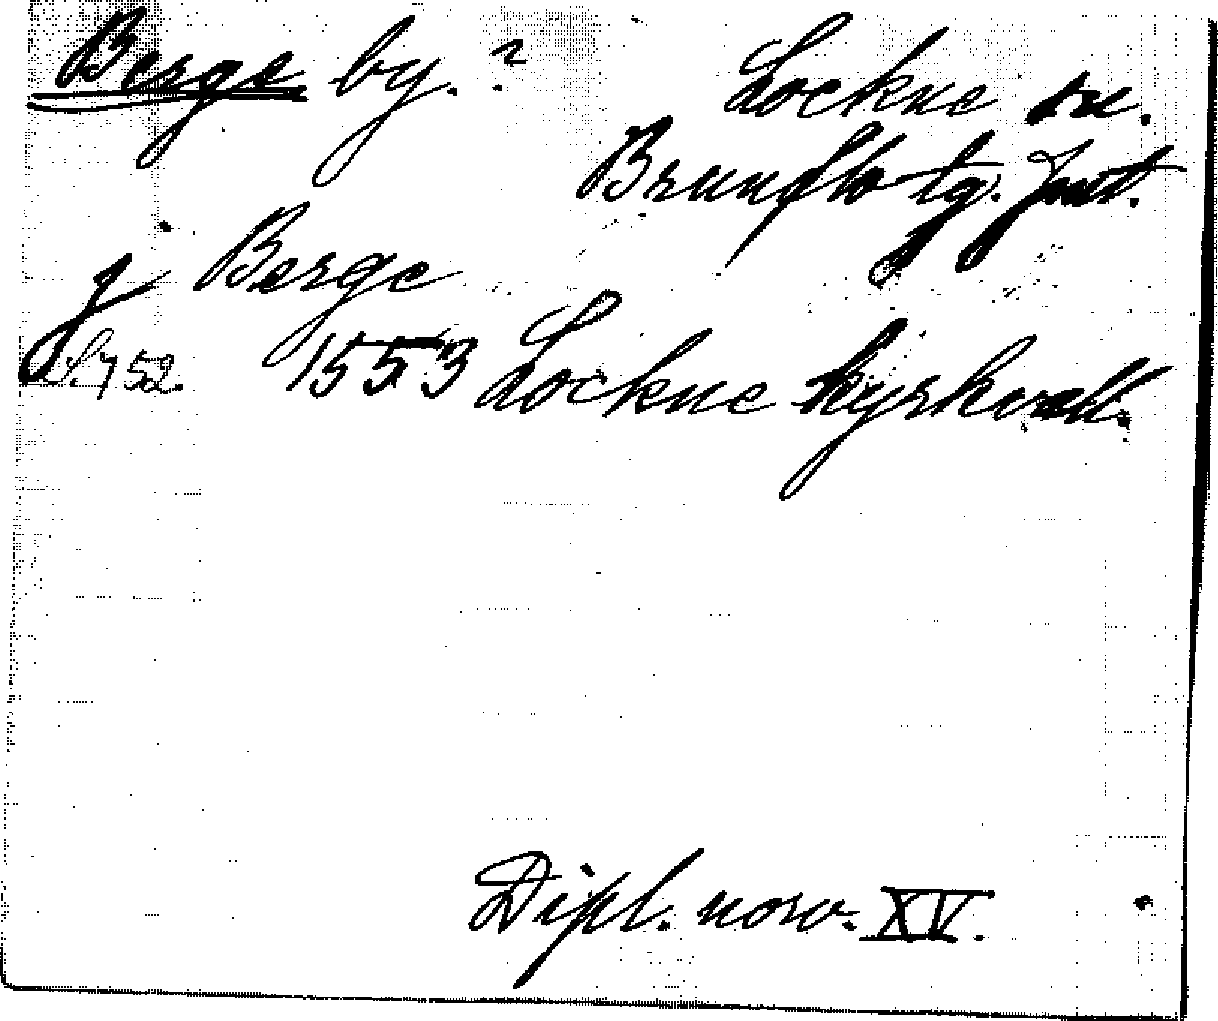 Berge by. ? Lockne sn.
Brunflo tg. Jmt.
j Berge
S. 752. 1553 Lockne kyrkoark.
Dipl. norv. XV.